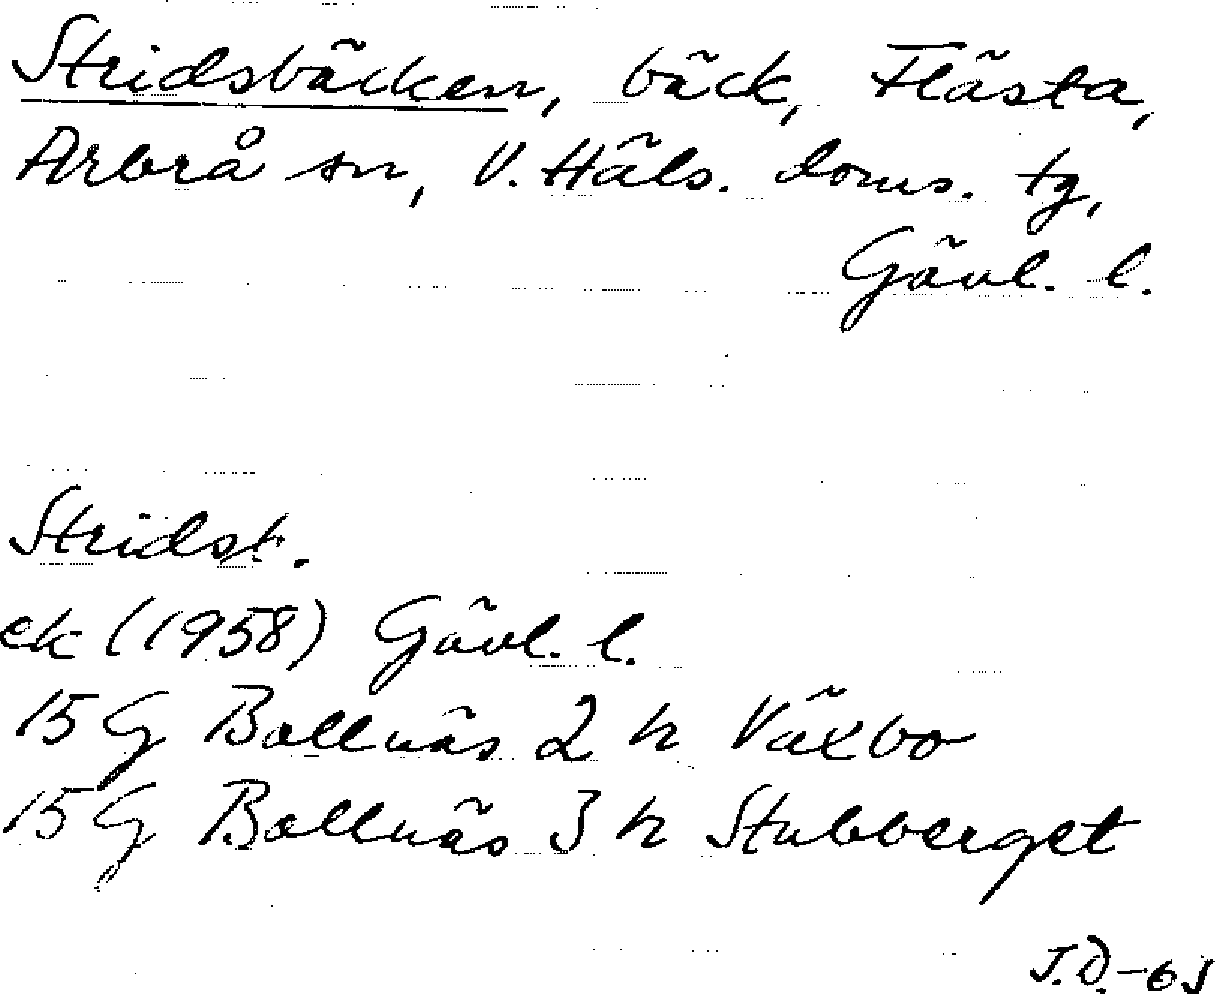 Stridsbäcken, bäck, Flästa,
Arbrå sn, V. Häls. doms. tg,
Gävl. l.
Stridsb.
ek (1958) Gävl. l.
15 G Bollnäs 2 h Växbo
15 G Bollnäs 3 h Stubberget